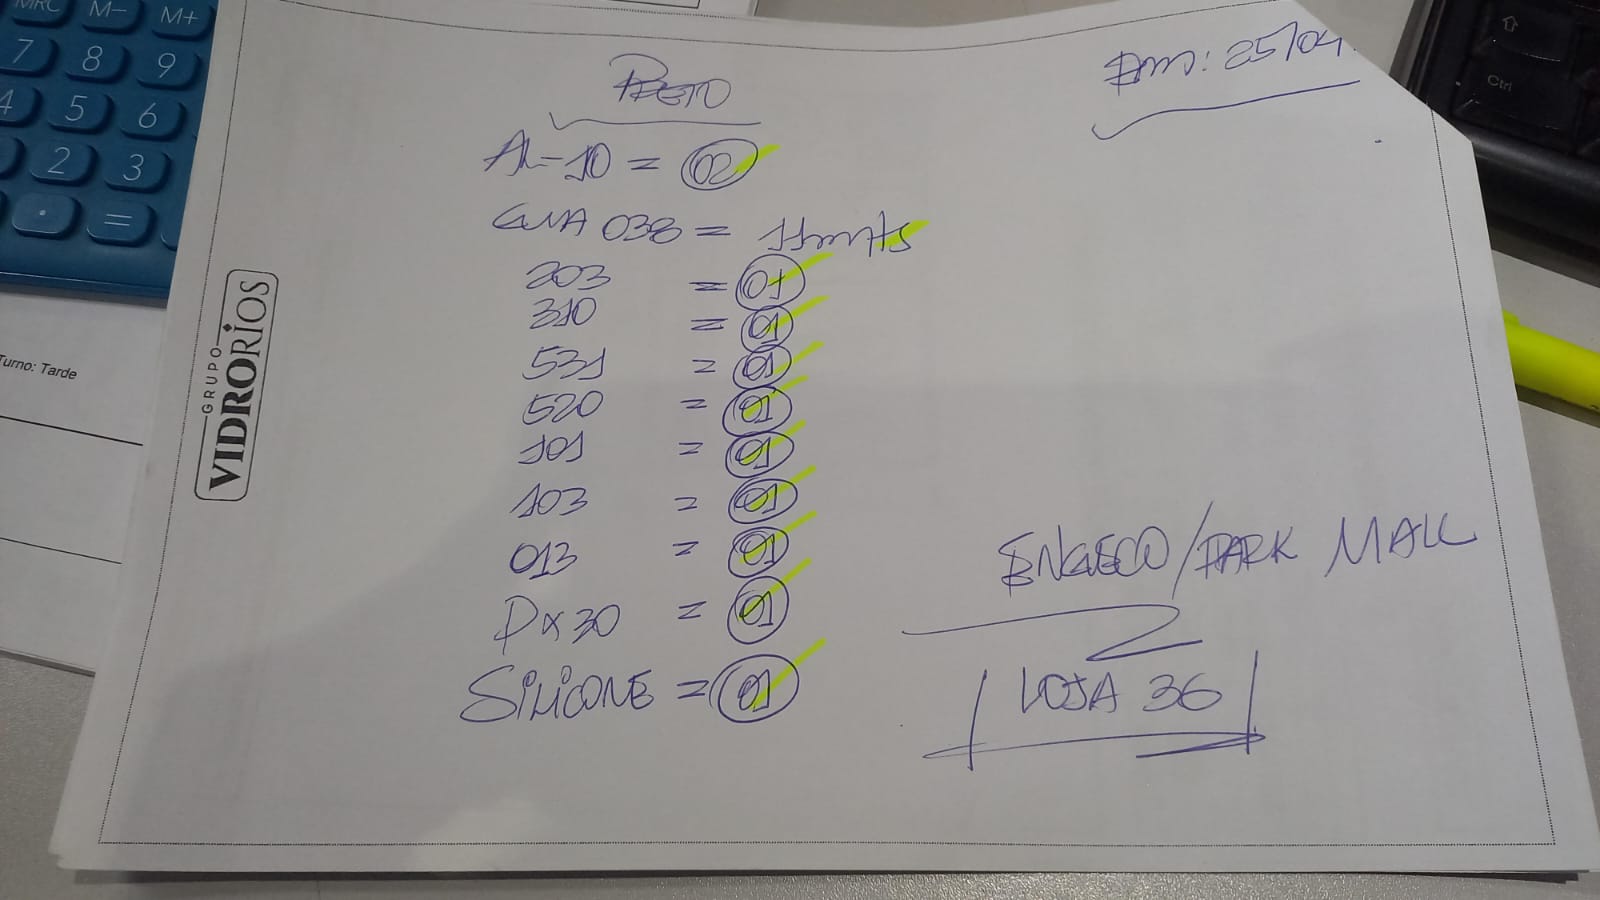 MRC M- M+
7 8 9
4 5 6
2 3
. =
Ctrl
Turno: Tarde
GRUPO
VIDRORIOS
PRETO
25/04
AL-10 = 02
GUIA 038 = 11mts
203 = 01
310 = 01
531 = 01
520 = 01
101 = 01
103 = 01
013 = 01
PX30 = 01
SILICONE = 01
ENGECO/PARK MALL
LOJA 36